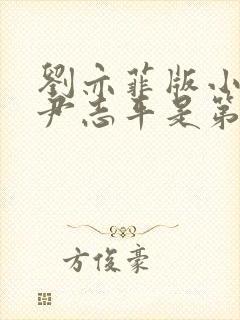 劉亦菲版小
尹志平是第
方俊豪